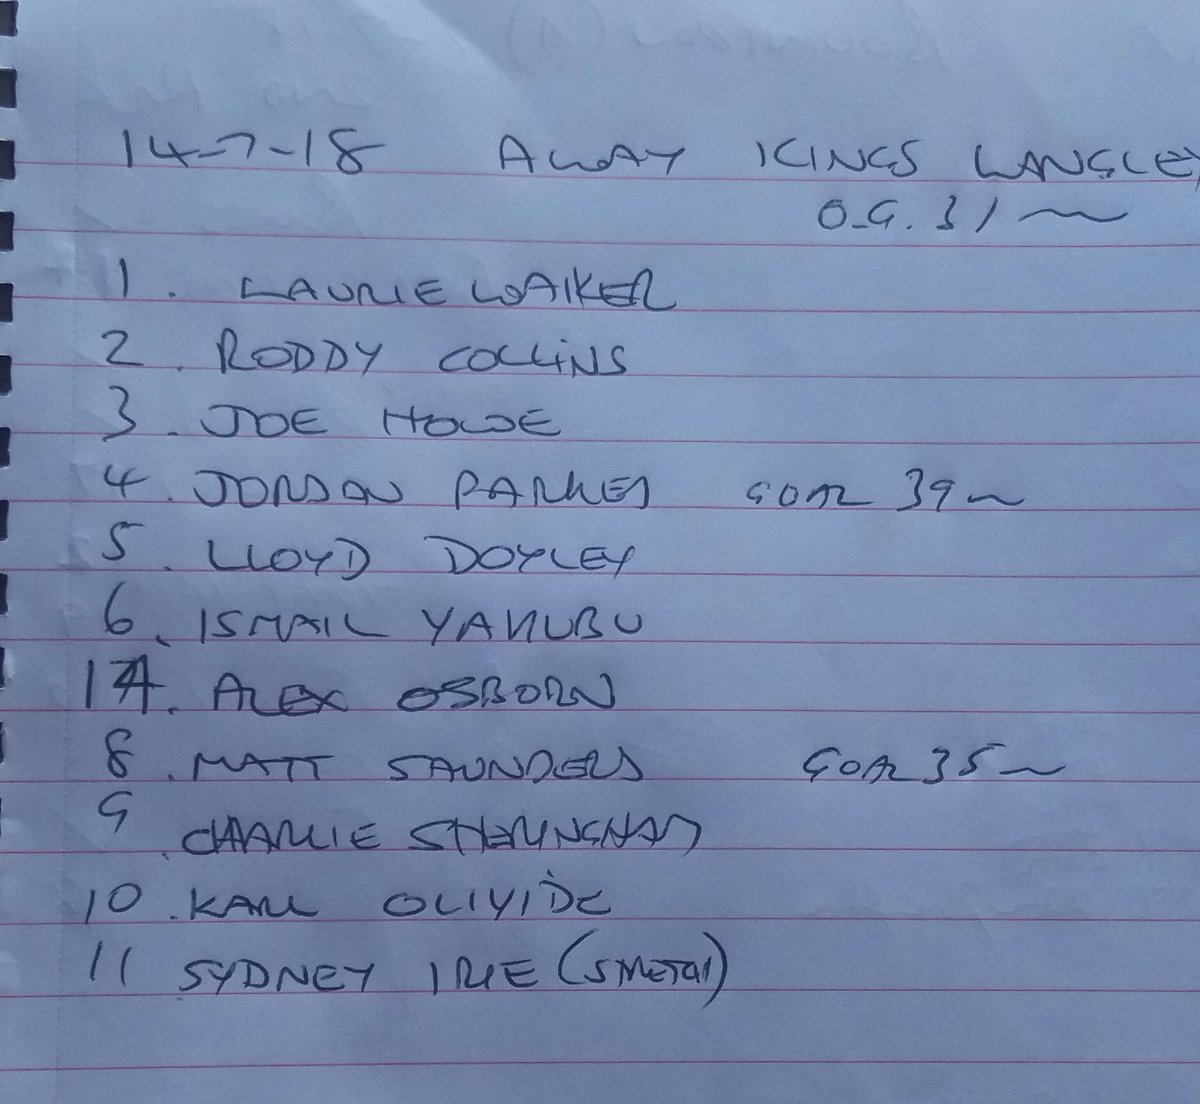 14-7-18 AWAY KINGS LANGLEY
O.G. 31 m
1. LAURIE WALKER
2. RODDY COLLINS
3. JOE HOWE
4. JORDAN PARKES GOAL 39 m
5. LLOYD DOYLEY
6. ISMAIL YAKUBU
14. ALEX OSBORN
8. MATT SAUNDERS GOAL 35 m
9. CHARLIE SHERINGHAM
10. KARL OLIYIDE
11 SYDNEY IRIE